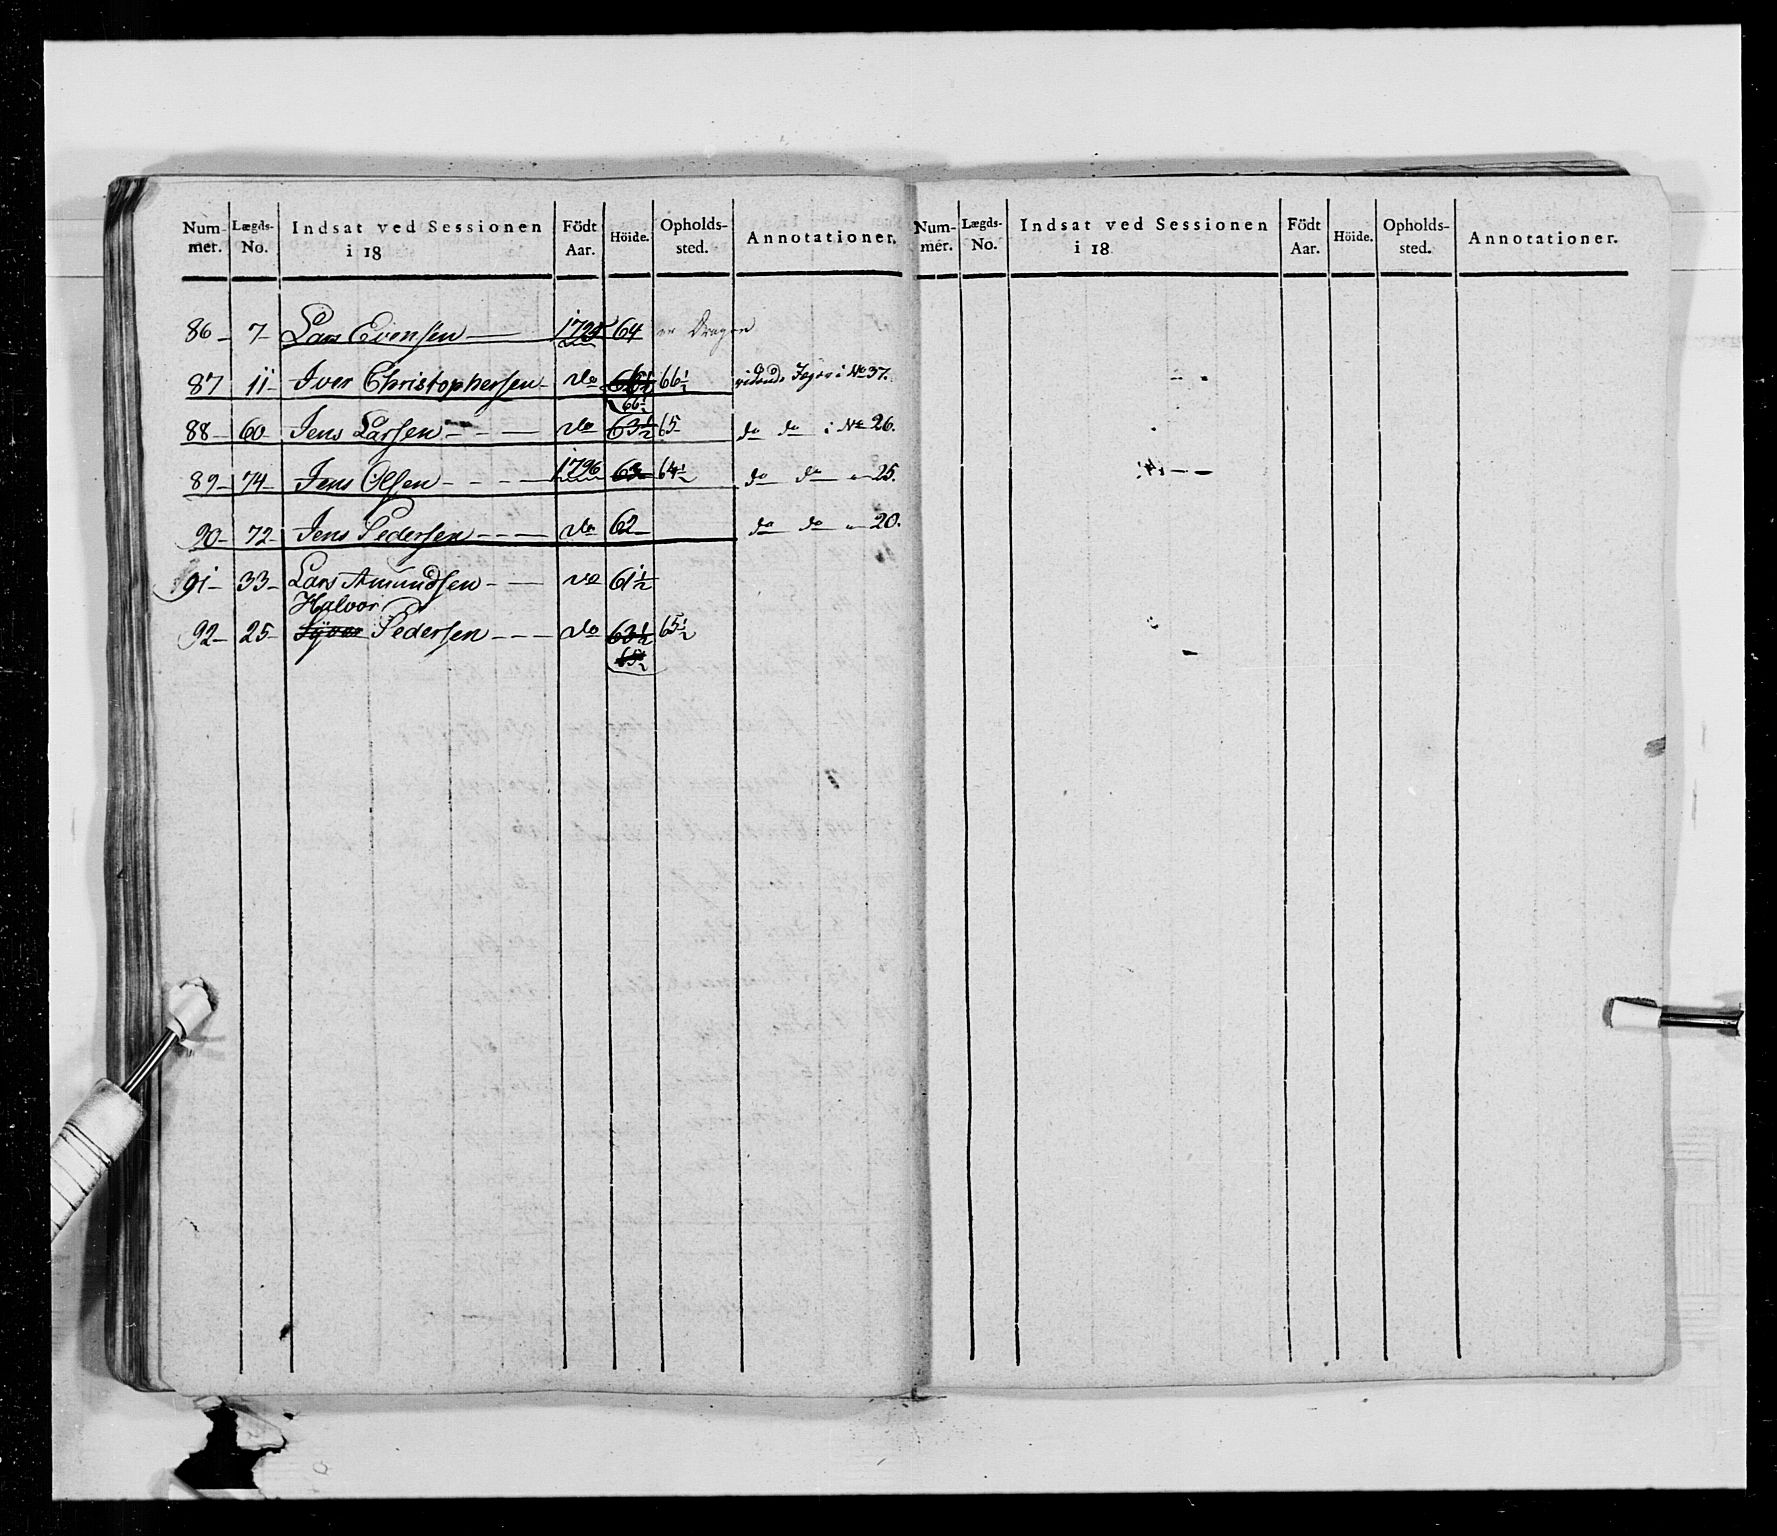 Num- Lægds- Indsat ved Sessionen Födt Höide. Opholds- Annotationer.
mer. No. i 18 Aar. sted.
86 - 7 - Lars Evensen - 64 er Dragon
87 11 - Iver Christophersen - do 66½ ridende Jæger i No 37.
66½
88 - 60 - Jens Larsen - - - do 63½ 65 do do i No 26.
89 - 74 - Jens Olsen - - - - 1796 63 64½ do do - 25.
90 - 72 - Jens Pedersen - - - do 62 - do do - 20.
91 - 33 - Lars Amundsen - - do 61½
Halvor
92 - 25 - Syver Pedersen - - - do 63½ 65½
65½
Num- Lægds- Indsat ved Sessionen Födt Höide. Opholds- Annotationer.
mer. No. i 18 Aar. sted.